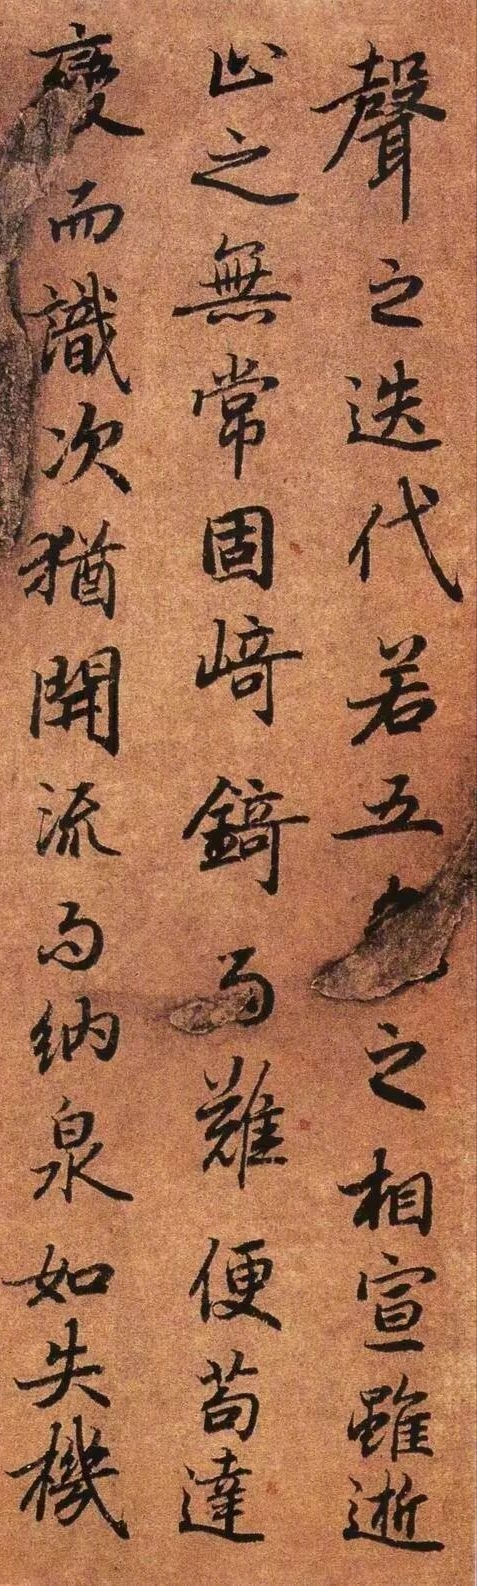 聲之迭代若五之相宣雖逝
止之無常固崎錡而難便苟達
變而識次猶開流以納泉如失機